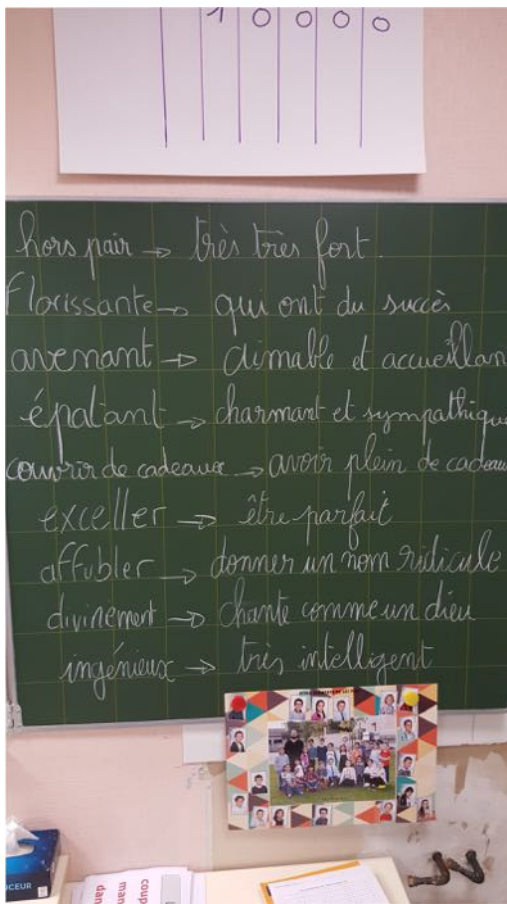 1 0 0 0 0
hors pair → très très fort.
Florissante → qui ont du succès
avenant → aimable et accueillan
épatant → charmant et sympathique
couvrir de cadeaux → avoir plein de cadeau
exceller → être parfait
affubler → donner un nom ridicule
divinement → chante comme un dieu
ingénieux → très intelligent
OCEUR
coup
man
dan